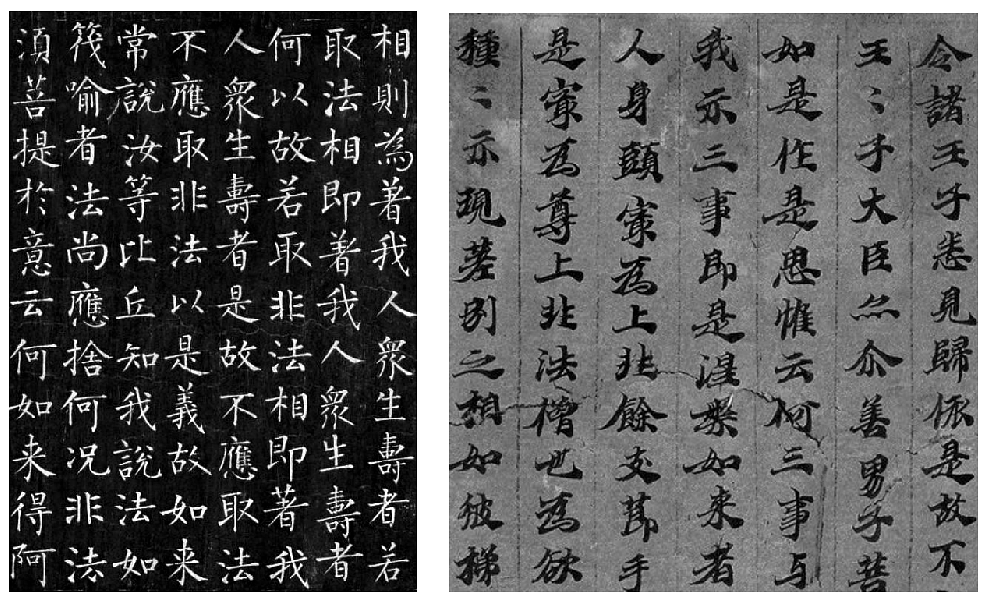 相則為著我人眾生壽者若
取法相即著我人眾生壽者
何以故若取非法相即著我
人眾生壽者是故不應取法
不應取非法以是義故如来
常說汝等比丘知我說法如
筏喻者法尚應捨何況非法
須菩提於意云何如来得阿
令諸王子悉見歸依是故不
王〻子大臣亦尒善男子菩
如是作是思惟云何三事与
我示三事即是涅槃如来者
人身頭冣為上非餘支莭手
是冣為尊上非法僧也為欲
種〻示現差別之相如彼梯